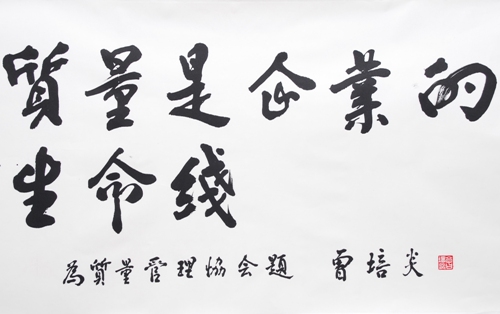 質量是企業的
生命线
為質量管理協会題 曾培炎